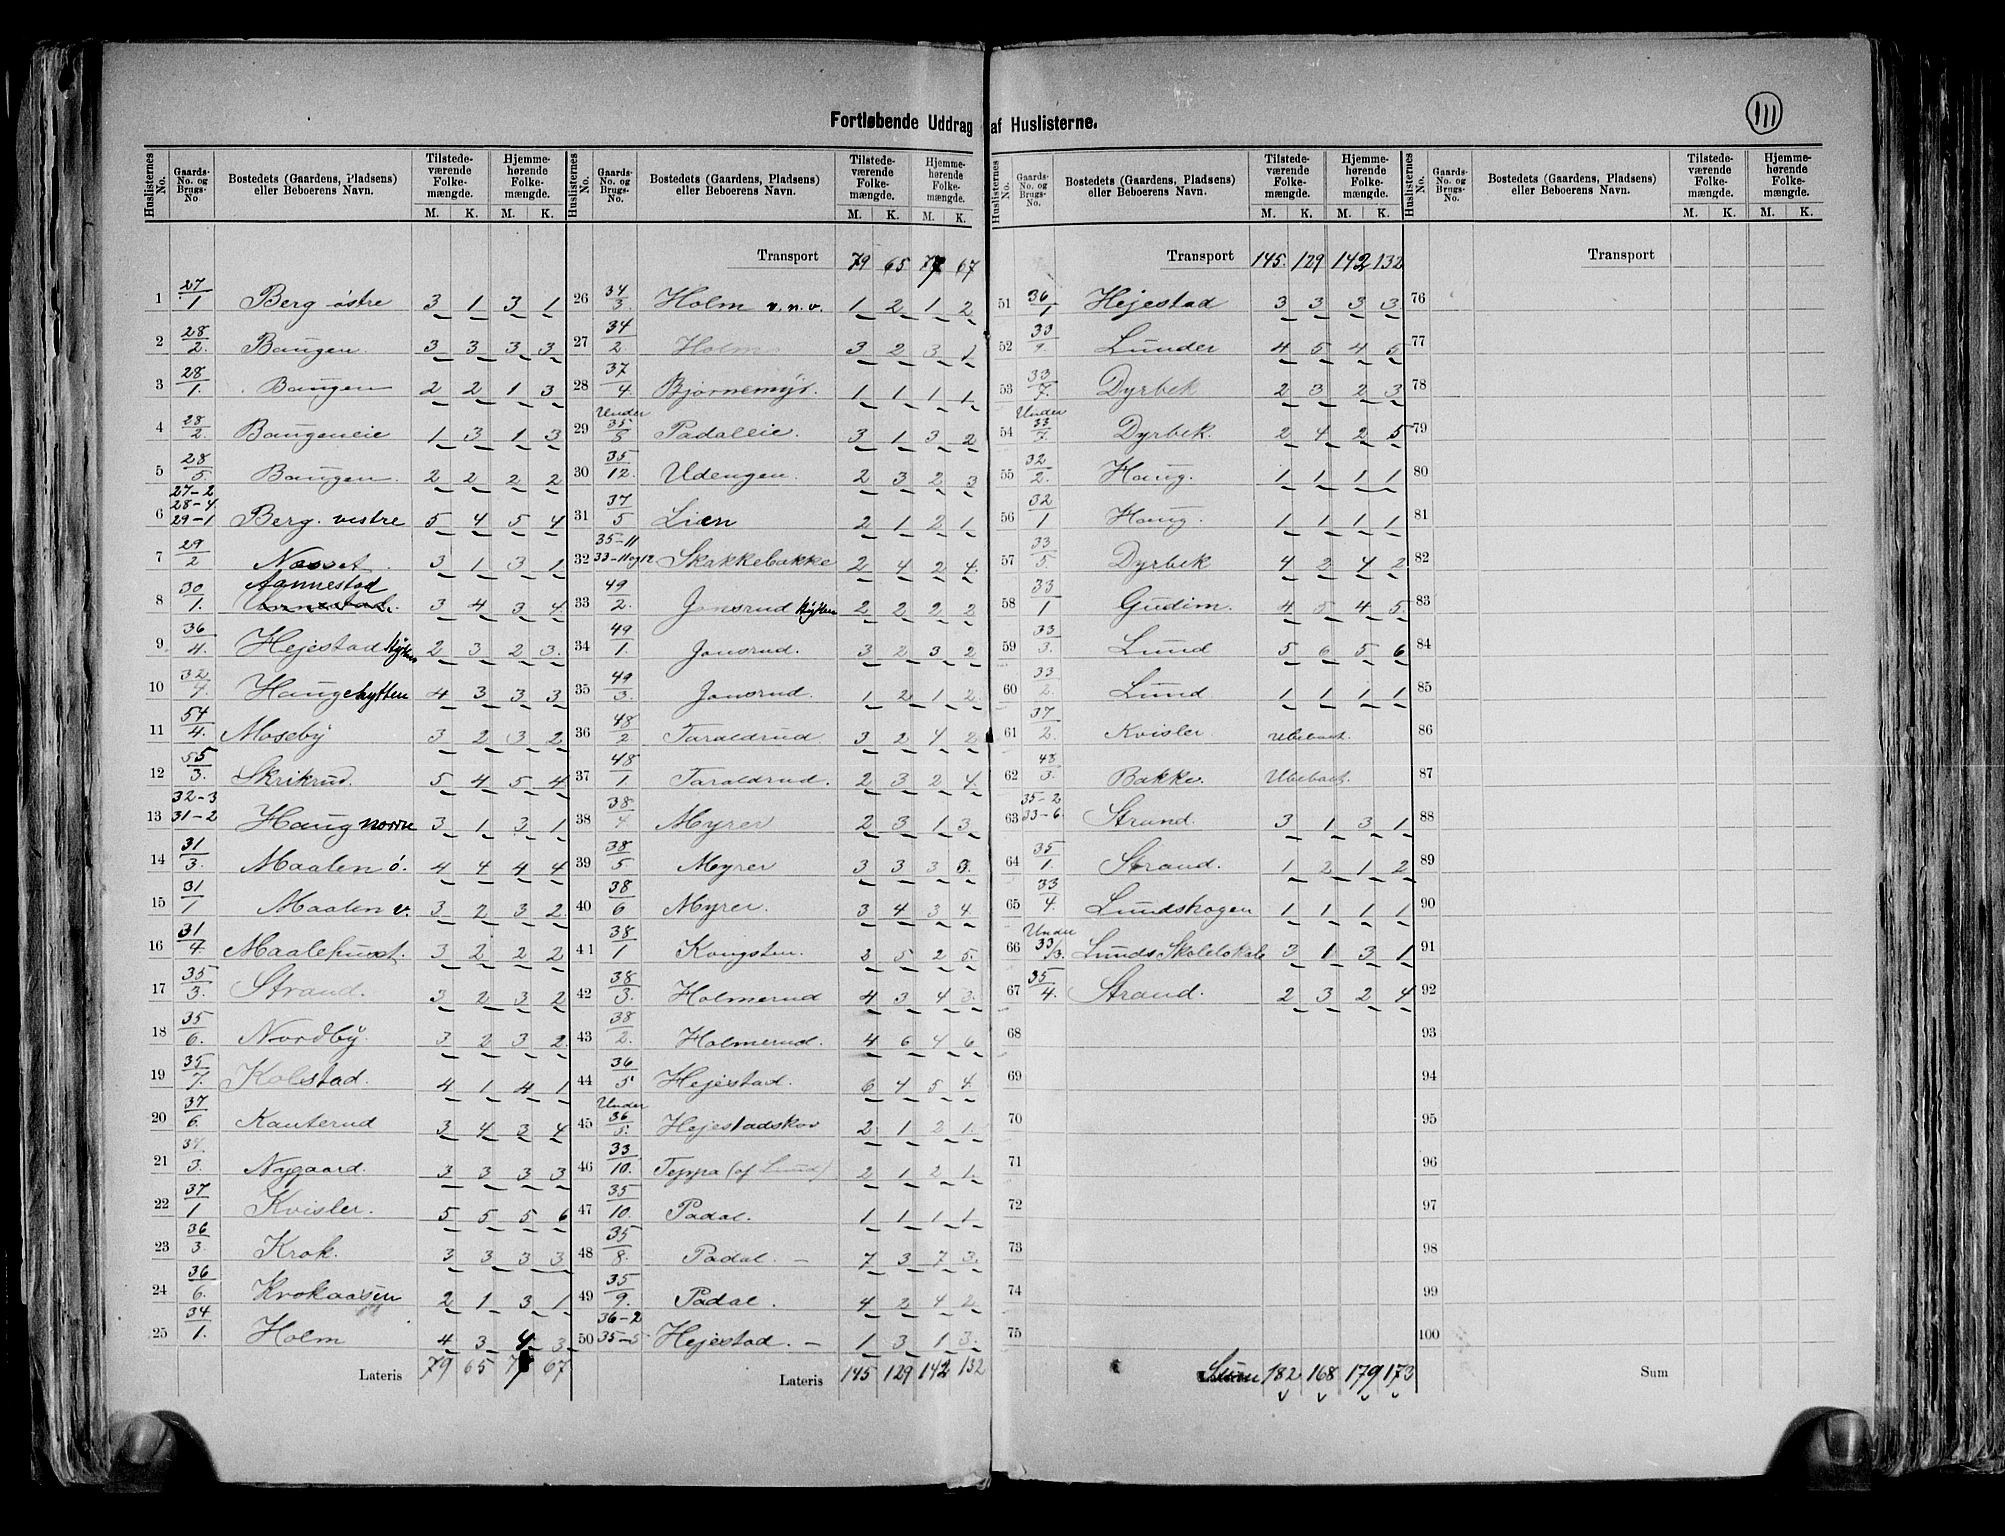 111
Fortløbende Uddrag af Huslisterne.
Huslisternes No. Gaards-No. og Brugs-No Bostedets (Gaardens, Pladsens) eller Beboerens Navn. Tilstede-værende Folke-mængde. M. K. Hjemme-hørende Folke-mængde. M. K.
1 27/1 Berg østre 3 1 3 1
2 28/2. Baugen. 3 3 3 3
3 28/1. Baugen 2 2 1 3
4 28/2. Baugeneie 1 3 1 3
5 28/5. Baugen. 2 2 2 2
6 27-2 28-4 29-1 Berg. vestre 5 4 5 4
7 29/2 Næsset. 3 1 3 1
8 30/1. Aannestad 3 4 3 4.
9 36/4. Hejestad 2 3 2 3.
10 32/4. Haugehytten 4 3 3 3
11 54/4. Moseby 3 2 3 2
12 55/3. Skrikrud. 5 4 5 4
13 32-3 31-2 Haug norre 3 1 3 1
14 31/3. Maalen ø. 4 4 4 4
15 31/1 Maalen v. 3 2 3 2.
16 31/4. Maalehuset. 3 2 2 2
17 35/3. Strand. 3 2 3 2
18 35/6. Nordby. 3 2 3 2.
19 35/7. Kolstad. 4 1 4 1
20 37/6. Kauterud 3 4 3 4
21 37/3. Nygaard. 3 3 3 3
22 37/1 Kvisler. 5 5 5 6
23 36/3 Krok. 3 3 3 3
24 36/6. Krokaasen 2 1 3 1
25 34/1. Holm 4 3 4 3
Lateris 79 65 77 67
Huslisternes No. Gaards-No. og Brugs-No. Bostedets (Gaardens, Pladsens) eller Beboerens Navn. Tilstede-værende Folke-mængde. M. K. Hjemme-hørende Folke-mængde. M. K.
Transport 79 65 77 67
26 34/3 Holm v.n.v. 1 2 1 2
27 34/2 Holm 3 2 3 1
28 37/4. Bjørnemyr. 1 1 1 1
29 Under 35/5 Padaleie. 3 1 3 2
30 35/12. Udengen. 2 3 2 3
31 37/5 Lien 2 1 2 1
32 35-11 33-11og12 Skakkebakke 2 4 2 4.
33 49/2. Jonsrud 2 2 2 2
34 49/1. Jonsrud. 3 2 3 2
35 49/3. Jonsrud. 1 2 1 2.
36 48/2 Taraldrud 3 2 4 2
37 48/1 Taraldrud. 2 3 2 4.
38 38/4 Myrer 2 3 1 3.
39 38/5 Myrer 3 3 3 3.
40 38/6 Myrer. 3 4 3 4.
41 38/1 Kongsten. 2 5 2 5.
42 38/3. Holmerud 4 3 4 3.
43 38/2. Holmerud. 4 6 4 6
44 36/5 Hejestad. 6 4 5 4.
45 Under 36/5. Hejestadskov 2 1 2 1.
46 33/10. Teppa (af Lund) 2 1 2 1.
47 35/10. Padal. 1 1 1 1
48 35/8. Padal. - 7 3 7 3.
49 35/9. Padal. 4 2 4 2
50 36-2 35-5 Hejestad. - 1 3 1 3.
Lateris 145 129 142 132
Huslisternes No. Gaards-No. og Brugs-No. Bostedets (Gaardens, Pladsens) eller Beboerens Navn. Tilstede-værende Folke-mængde. M. K. Hjemme-hørende Folke-mængde. M. K.
Transport 145. 129 142 132
51 36/1 Hejestad 3 3 3 3
52 33/9. Lunder 4 5 4 5
53 33/7. Dyrbek 2 3 2 3
54 Under 33/7 Dyrbek. 2 4 2 5
55 32/2. Haug. 1 1 1 1
56 32/1 Haug. 1 1 1 1
57 33/5 Dyrbek 4 2 4 2
58 33/1 Gudim. 4 5 4 5.
59 33/3. Lund 5 6 5 6
60 33/2. Lund 1 1 1 1
61 37/2. Kvisler Ubeboet.
62 43/3. Bakke. Ubeboet.
63 35-2 33-6. Strand. 3 1 3 1
64 35/1. Strand. 1 2 1 2
65 33/4. Lundskogen 1 1 1 1
66 Under 33/3. Lunds Skolelokale 3 1 3 1
67 35/4. Strand. 2 3 2 4
68
69
70
71
72
73
74
75
Sum 182 168 179 173
Huslisternes No. Gaards-No. og Brugs-No. Bostedets (Gaardens, Pladsens) eller Beboerens Navn. Tilstede-værende Folke-mængde. M. K. Hjemme-hørende Folke-mængde. M. K.
Transport
76
77
78
79
80
81
82
83
84
85
86
87
88
89
90
91
92
93
94
95
96
97
98
99
100
Sum